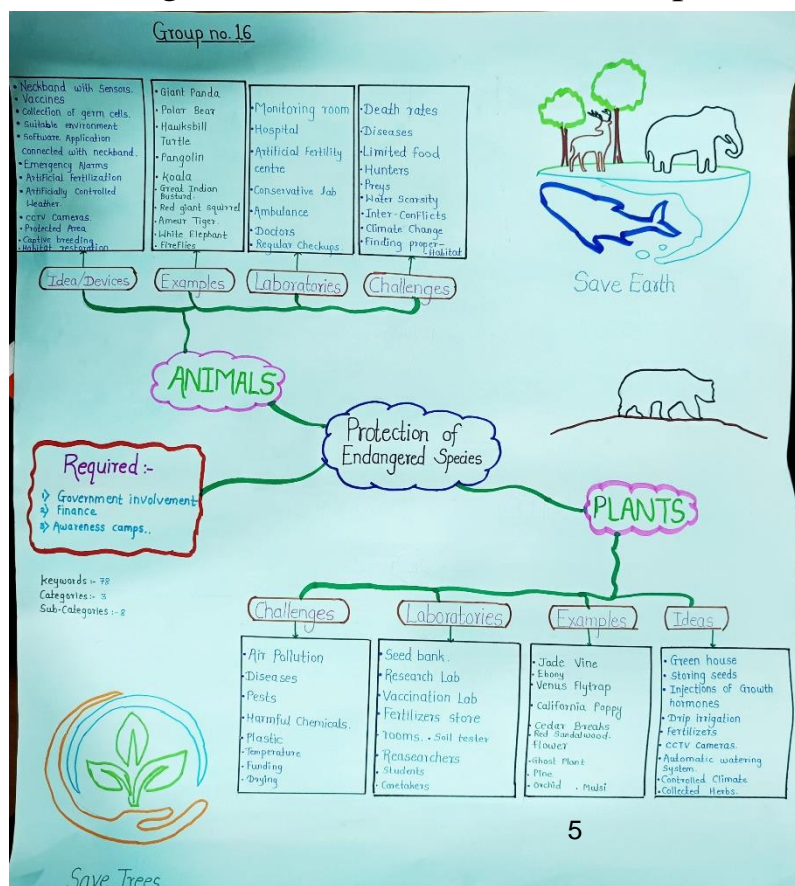 Group no. 16
• Neckband with Sensors.
• Vaccines
• Collection of germ cells.
• Suitable environment
• Software Application
Connected with neckband.
• Emergency Alarms
• Artificial Fertilization
• Artificially Controlled
Weather.
• CCTV Cameras.
• Protected Area
• Captive breeding
• Habitat restoration
• Giant Panda
• Polar Bear
• Hawksbill
Turtle
• Pangolin
• Koala
• Great Indian
Bustard.
• Red giant squirrel
• Ameur Tiger.
• White Elephant
• Fireflies
• Monitoring room
• Hospital
• Artificial fertility
centre
• Conservative lab
• Ambulance
• Doctors
• Regular Checkups.
• Death rates
• Diseases
• Limited food
• Hunters
• Preys
• Water Scarsity
• Inter-Conflicts
• Climate Change
• Finding proper-
Habitat
Idea/Devices
Examples
Laboratories
Challenges
Save Earth
ANIMALS
Protection of
Endangered Species
Required :-
1) Government involvement
2) Finance
3) Awareness camps..
PLANTS
Keywords :- 78
Categories :- 3
Sub-Categories :- 8
Challenges
Laboratories
Examples
Ideas
• Air Pollution
• Diseases
• Pests
• Harmful Chemicals.
• Plastic
• Temperature
• Funding
• Drying
• Seed bank.
• Research Lab
• Vaccination Lab
• Fertilizers store
rooms. • Soil tester
• Reasearchers
• Students
• Caretakers
• Jade Vine
• Ebony
• Venus Flytrap
• California Poppy
• Cedar Breaks
• Red Sandalwood.
flower
• Ghost Plant
• Pine
• Orchid . Mulsi
• Green house
• Storing seeds
• Injections of Growth
hormones
• Drip irrigation
• Fertilizers
• CCTV Cameras.
• Automatic watering
System.
• Controlled Climate
• Collected Herbs.
5
Save Trees